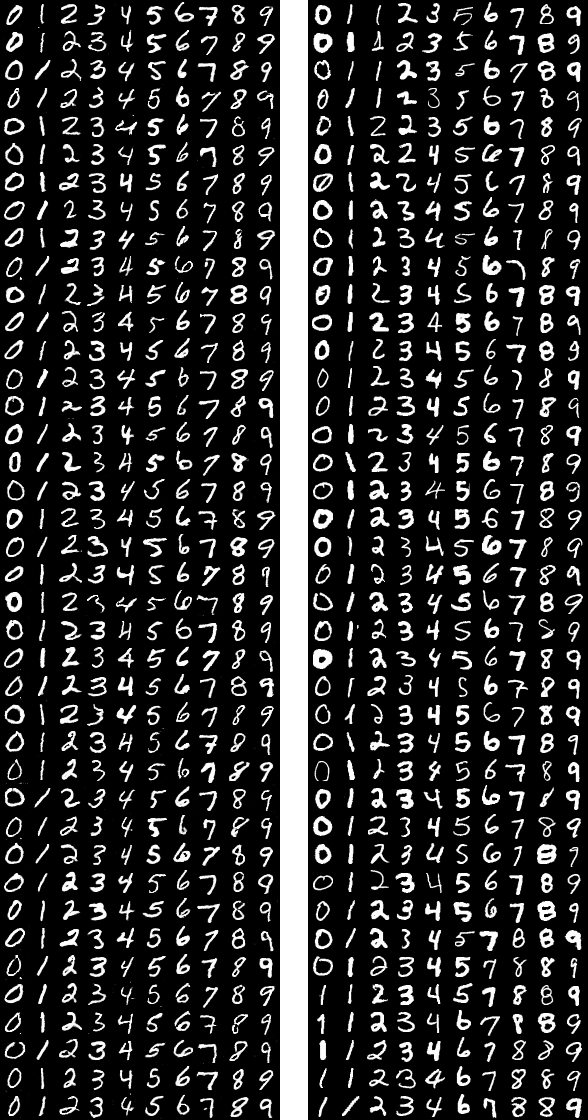 0 1 2 3 4 5 6 7 8 9
0 1 2 3 4 5 6 7 8 9
0 1 2 3 4 5 6 7 8 9
0 1 2 3 4 5 6 7 8 9
0 1 2 3 4 5 6 7 8 9
0 1 2 3 4 5 6 7 8 9
0 1 2 3 4 5 6 7 8 9
0 1 2 3 4 5 6 7 8 9
0 1 2 3 4 5 6 7 8 9
0 1 2 3 4 5 6 7 8 9
0 1 2 3 4 5 6 7 8 9
0 1 2 3 4 5 6 7 8 9
0 1 2 3 4 5 6 7 8 9
0 1 2 3 4 5 6 7 8 9
0 1 2 3 4 5 6 7 8 9
0 1 2 3 4 5 6 7 8 9
0 1 2 3 4 5 6 7 8 9
0 1 2 3 4 5 6 7 8 9
0 1 2 3 4 5 6 7 8 9
0 1 2 3 4 5 6 7 8 9
0 1 2 3 4 5 6 7 8 9
0 1 2 3 4 5 6 7 8 9
0 1 2 3 4 5 6 7 8 9
0 1 2 3 4 5 6 7 8 9
0 1 2 3 4 5 6 7 8 9
0 1 2 3 4 5 6 7 8 9
0 1 2 3 4 5 6 7 8 9
0 1 2 3 4 5 6 7 8 9
0 1 2 3 4 5 6 7 8 9
0 1 2 3 4 5 6 7 8 9
0 1 2 3 4 5 6 7 8 9
0 1 2 3 4 5 6 7 8 9
0 1 2 3 4 5 6 7 8 9
0 1 2 3 4 5 6 7 8 9
0 1 2 3 4 5 6 7 8 9
0 1 2 3 4 5 6 7 8 9
0 1 2 3 4 5 6 7 8 9
0 1 2 3 4 5 6 7 8 9
0 1 2 3 4 5 6 7 8 9
0 1 2 3 4 5 6 7 8 9
0 1 1 2 3 5 6 7 8 9
0 1 1 2 3 5 6 7 8 9
0 1 1 2 3 5 6 7 8 9
0 1 1 2 3 5 6 7 8 9
0 1 2 2 3 5 6 7 8 9
0 1 2 2 4 5 6 7 8 9
0 1 2 2 4 5 6 7 8 9
0 1 2 3 4 5 6 7 8 9
0 1 2 3 4 5 6 7 8 9
0 1 2 3 4 5 6 7 8 9
0 1 2 3 4 5 6 7 8 9
0 1 2 3 4 5 6 7 8 9
0 1 2 3 4 5 6 7 8 9
0 1 2 3 4 5 6 7 8 9
0 1 2 3 4 5 6 7 8 9
0 1 2 3 4 5 6 7 8 9
0 1 2 3 4 5 6 7 8 9
0 1 2 3 4 5 6 7 8 9
0 1 2 3 4 5 6 7 8 9
0 1 2 3 4 5 6 7 8 9
0 1 2 3 4 5 6 7 8 9
0 1 2 3 4 5 6 7 8 9
0 1 2 3 4 5 6 7 8 9
0 1 2 3 4 5 6 7 8 9
0 1 2 3 4 5 6 7 8 9
0 1 2 3 4 5 6 7 8 9
0 1 2 3 4 5 6 7 8 9
0 1 2 3 4 5 6 7 8 9
0 1 2 3 4 5 6 7 8 9
0 1 2 3 4 5 6 7 8 9
0 1 2 3 4 5 6 7 8 9
0 1 2 3 4 5 6 7 8 9
0 1 2 3 4 5 6 7 8 9
0 1 2 3 4 5 7 8 8 9
0 1 2 3 4 5 7 8 8 9
1 1 2 3 4 5 7 8 8 9
1 1 2 3 4 6 7 8 8 9
1 1 2 3 4 6 7 8 8 9
1 1 2 3 4 6 7 8 8 9
1 1 2 3 4 6 7 8 8 9